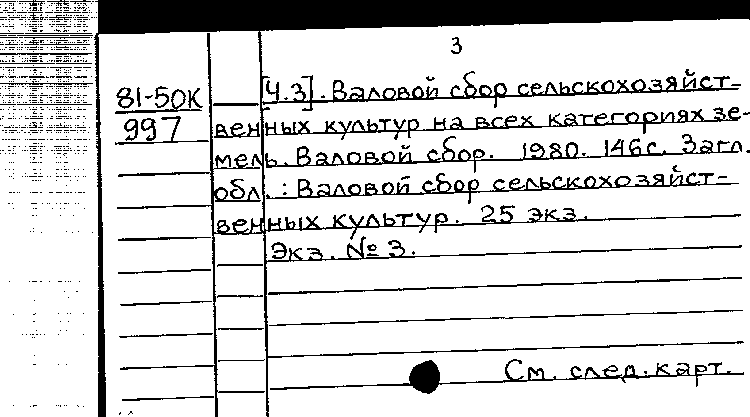 3
81-50К [Ч.3]. Валовой сбор сельскохозяйст-
997 венных культур на всех категориях зе-
мель. Валовой сбор. 1980. 146с. Загл.
обл.: Валовой сбор сельскохозяйст-
венных культур. 25 экз.
Экз. № 3.
См. след. карт.